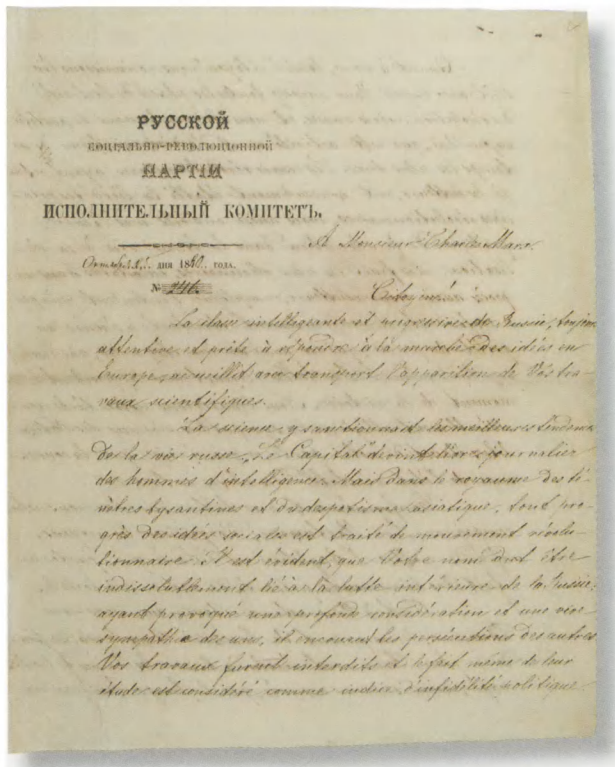 РУССКОЙ
СОЦІАЛЬНО-РЕВОЛЮЦІОННОЙ
ПАРТІИ
ИСПОЛНИТЕЛЬНЫЙ КОМИТЕТЪ.
A Monsieur Charles Marx.
дня 1880. года.
№
Citoyen!
La classe intelligeante et progressive de Russie, toujours
attentive et prête à répondre à la marche des idées en
Europe, accueillit avec transport l'apparition de Vos tra-
vaux scientifiques.
La science y sanctionnait les meilleures
de la vie russe. Le Capital journalier
des hommes d'intelligence. Mais dans le royaume des té-
nèbres bysantines et du despotisme asiatique, tout pro-
grès des idées sociales est traité de mouvement révolu-
tionnaire. Il est évident, que Votre nom dut être
indissolublement lié à la lutte intérieure de la Russie;
ayant provoqué une profonde considération et une vive
sympathie des uns, il encourut les persécutions des autres.
Vos travaux furent interdits et le fait même de leur
étude est considéré comme indice d'infidélité politique.